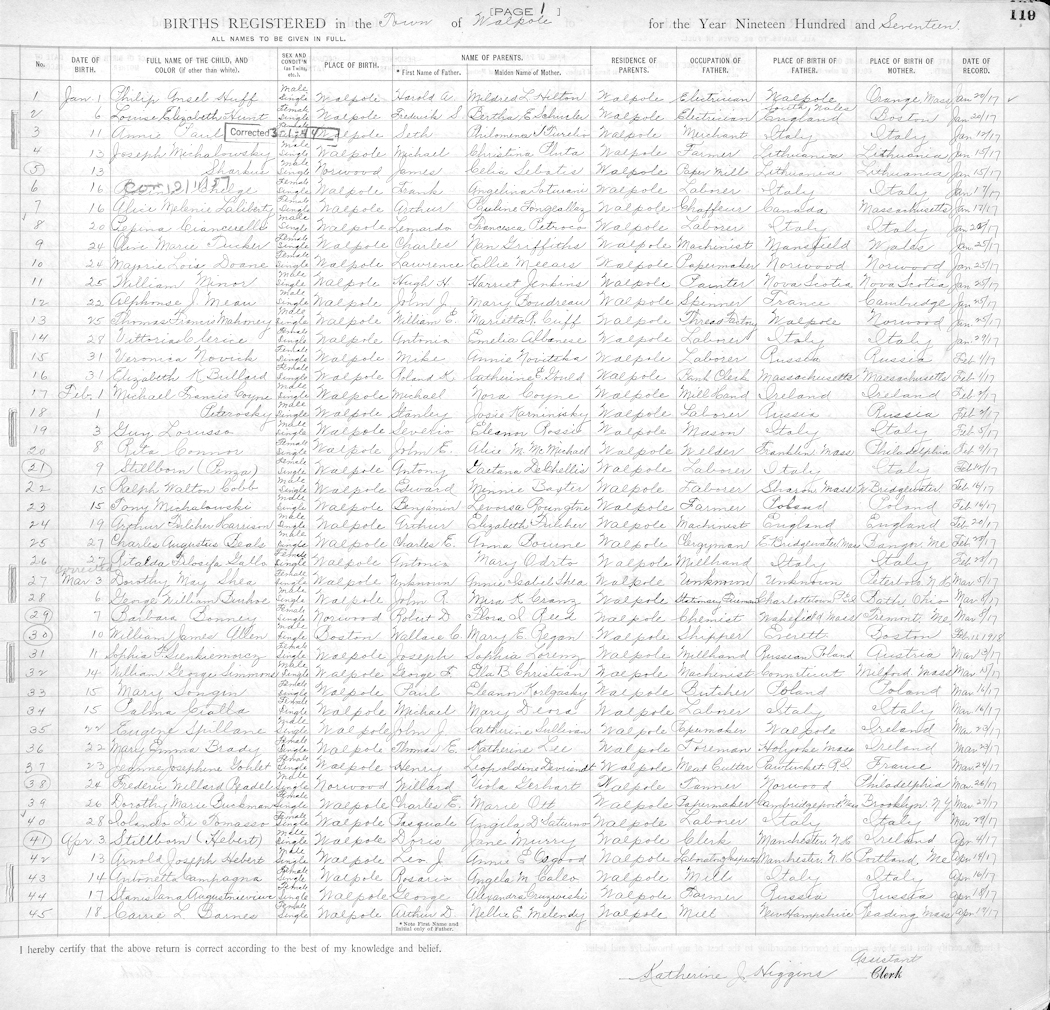 119
[PAGE 1 ]
BIRTHS REGISTERED in the Town of Walpole for the Year Nineteen Hundred and Seventeen.
ALL NAMES TO BE GIVEN IN FULL.
No. DATE OF BIRTH. FULL NAME OF THE CHILD, AND COLOR (if other than white). SEX AND CONDIT'N (as Twins, etc.). PLACE OF BIRTH. NAME OF PARENTS. * First Name of Father. Maiden Name of Mother. RESIDENCE OF PARENTS. OCCUPATION OF FATHER. PLACE OF BIRTH OF FATHER. PLACE OF BIRTH OF MOTHER. DATE OF RECORD.
1 Jan 1 Philip Ansel Huff Male Single Walpole Harold A. Mildred L. Hilton Walpole Electrician Walpole Orange, Mass Jan 20/17
2 6 Louise Elizabeth Hunt Female Single Walpole Frederick S Bertha E. Walpole Electrician England Boston Jan 20/17
3 11 Annie Corrected 3-1-44 Walpole Seth Philomena Walpole Merchant Italy Italy Jan 15/17
4 13 Joseph Michalowsky Male Single Walpole Michael Christina Pluta Walpole Farmer Lithuania Lithuania Jan 15/17
5 13 Sharkus Male Single Norwood James Celia Sebatis Walpole Paper Mill Lithuania Lithuania Jan 15/17
6 16 Female Single Walpole Frank Angelina Walpole Laborer Italy Italy Jan 17/17
7 16 Alice Melenie Laliberty Female Single Walpole Arthur Pauline Walpole Chaffeur Canada Massachusetts Jan 17/17
8 20 Pepina Ciancerello Single Walpole Lenardo Francesca Petroco Walpole Laborer Italy Italy Jan
9 24 Olive Marie Tucker Female Single Walpole Charles Nan Griffiths Walpole Machinist Mansfield Wales Jan 25/17
10 24 Majorie Lois Doane Female Single Walpole Lawrence Ellie Mears Walpole Papermaker Norwood Norwood Jan 25/17
11 25 William Manor Male Single Walpole Hugh H. Harriet Jenkins Walpole Painter Nova Scotia Nova Scotia Jan
12 22 Alphonse J. Meau Male Single Walpole John J. Mary Boudreau Walpole Spinner France Cambridge Jan
13 25 Thomas Francis Mahoney Male Single Walpole William E. Marietta R. Cuff Walpole Thread Factory Walpole Norwood Jan
14 28 Vittoria Clerice Female Single Walpole Antonio Emelia Albanese Walpole Laborer Italy Italy Jan 29/17
15 31 Veronica Novick Female Single Walpole Mike Annie Novitzka Walpole Laborer Russia Russia Feb 1/17
16 31 Elizabeth K Bullard Female Single Walpole Roland K. Catherine E. Gould Walpole Bank Clerk Massachusetts Massachusetts Feb 1/17
17 Feb. 1 Michael Francis Coyne Male Single Walpole Michael Nora Coyne Walpole Mill Hand Ireland Ireland Feb
18 1 Peterosky Male Single Walpole Stanley Josie Karninisky Walpole Laborer Russia Russia Feb
19 3 Guy Lorusso Male Single Walpole Saverio Eleanor Rossie Walpole Mason Italy Italy Feb 5/17
20 8 Rita Connor Female Single Walpole John E. Alice M. McMichael Walpole Welder Franklin Mass Philadelphia Feb
21 9 Stillborn Female Single Walpole Antony Gaetana Walpole Laborer Italy Italy Feb 10/17
22 15 Ralph Walton Cobb Male Single Walpole Edward Minnie Baxter Walpole Laborer Sharon Mass W Bridgewater Feb 16/17
23 15 Tony Michalowski Male Single Walpole Benjamin Walpole Farmer Poland Poland Feb 16/17
24 19 Arthur Pulcher Harrison Male Single Walpole Arthur Elizabeth Pulcher Walpole Machinist England England Feb 20/17
25 27 Charles Augustus Beals Male Single Walpole Charles E. Anna Bourne Walpole Clergyman E. Bridgewater Mass Bangor, Me Feb
26 27 Ritalda Filosifa Gallo Female Single Walpole Antonio Mary Walpole Millhand Italy Italy Feb
Corrected
27 Mar 3 Dorothy May Shea Female Single Walpole Unknown Annie Isabel Shea Walpole Unknown Unknown Peterboro N.H. Mar 5/17
28 6 George William Male Single Walpole John R. Mira K. Walpole Stationary Fireman Charlottetown P.E.I. Bath, Ohio Mar 8/17
29 7 Barbara Bonney Female Single Norwood Robert D. Flora I. Reed Walpole Chemist Wakefield Mass Fremont, Me Mar 9/17
30 10 William James Allen Male Single Boston Wallace C. Mary E. Regan Walpole Shipper Everett Boston Feb. 15, 1918
31 11 Sophia Female Single Walpole Joseph Sophia Lorenz Walpole Millhand Russian Poland Austria Mar 13/17
32 14 William George Simmons Male Single Walpole George F. Ella B. Christian Walpole Machinist Connecticut Milford, Mass Mar 15/17
33 15 Mary Songin Female Single Walpole Paul Eleanor Walpole Butcher Poland Poland Mar 16/17
34 15 Palma Cialla Female Single Walpole Michael Mary Walpole Laborer Italy Italy Mar 16/17
35 22 Eugene Spillane Male Single Walpole John J. Catherine Sullivan Walpole Papermaker Walpole Ireland Mar
36 22 Mary Emma Brady Female Single Walpole Thomas E. Katherine Lee Walpole Foreman Holyoke Mass Ireland Mar
37 23 Jeanne Josephine Female Single Walpole Henry Leopoldine Walpole Meat Cutter Pawtucket, R.I. France Mar 24/17
38 24 Frederic Willard Readel Male Single Norwood Willard Viola Gerhart Walpole Tanner Norwood Philadelphia Mar 26/17
39 26 Dorothy Marie Buckman Female Single Walpole Charles E. Marie Ott Walpole Papermaker Cambridgeport Mass Brooklyn N.Y. Mar 27/17
40 28 Rolando Di Tomasso Male Single Walpole Pasquale Angela D. Saturno Walpole Laborer Italy Italy Mar 29/17
41 Apr 3 Stillborn (Hebert) Male Single Walpole Doris Jane Murry Walpole Clerk Manchester, N.H. Ireland Apr 4/17
42 13 Arnold Joseph Hebert Male Single Walpole Leo J. Annie E. Osgood Walpole Manchester, N.H. Portland, Me Apr 14/17
43 14 Antonetta Campagna Female Single Walpole Rosario Angela M. Caleo Walpole Mill Italy Italy Apr 16/17
44 17 Stanislana Female Single Walpole George Alexandra Walpole Farmer Russia Russia Apr 18/17
45 18 Carrie L. Barnes Female Single Walpole Arthur D. Nellie E. Melendy Walpole Mill New Hampshire Reading Mass Apr 19/17
* Note First Name and Initial only of Father.
I hereby certify that the above return is correct according to the best of my knowledge and belief.
Katherine J. Higgins Assistant Clerk